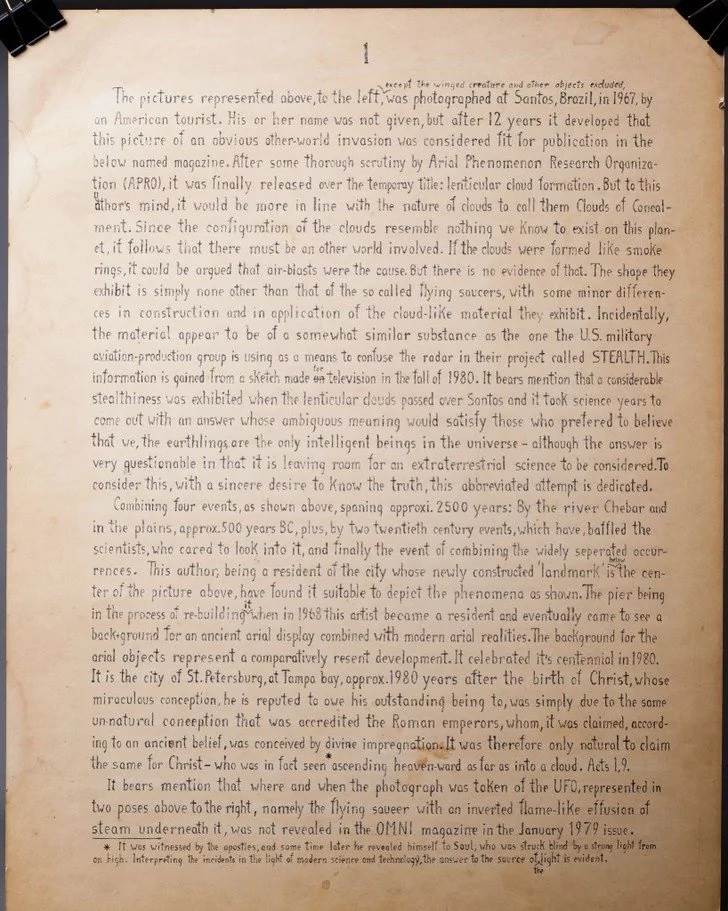 1
except the winged creature and other objects excluded,
The pictures represented above, to the left, was photographed at Santos, Brazil, in 1967, by
an American tourist. His or her name was not given, but after 12 years it developed that
this picture of an obvious other-world invasion was considered fit for publication in the
below named magazine. After some thorough scrutiny by Arial Phenomenon Research Organiza-
tion (APRO), it was finally released over the temporay title: lenticular cloud formation. But to this
authors mind, it would be more in line with the nature of clouds to call them Clouds of Conceal-
ment. Since the configuration of the clouds resemble nothing we know to exist on this plan-
et, it follows that there must be an other world involved. If the clouds were formed like smoke
rings, it could be argued that air-blasts were the cause. But there is no evidence of that. The shape they
exhibit is simply none other than that of the so called flying saucers, with some minor differen-
ces in construction and in application of the cloud-like material they exhibit. Incidentally,
the material appear to be of a somewhat similar substance as the one the U.S. military
aviation-production group is using as a means to confuse the radar in their project called STEALTH. This
information is gained from a sketch made for television in the fall of 1980. It bears mention that a considerable
stealthiness was exhibited when the lenticular clouds passed over Santos and it took science years to
come out with an answer whose ambiguous meaning would satisfy those who prefered to believe
that we, the earthlings, are the only intelligent beings in the universe - although the answer is
very questionable in that it is leaving room for an extraterrestrial science to be considered. To
consider this, with a sincere desire to know the truth, this abbreviated attempt is dedicated.
Combining four events, as shown above, spaning approxi. 2500 years: By the river Chebar and
in the plains, approx. 500 years BC, plus, by two twentieth century events, which have, baffled the
scientists, who cared to look into it, and finally the event of combining the widely seperated occur-
rences. This author, being a resident of the city whose newly constructed 'landmark' is below the cen-
ter of the picture above, have found it suitable to depict the phenomena as shown. The pier being
in the process of re-building it when in 1968 this artist became a resident and eventually came to see a
back-ground for an ancient arial display combined with modern arial realities. The background for the
arial objects represent a comparatively resent development. It celebrated it's centennial in 1980.
It is the city of St. Petersburg, at Tampa bay, approx. 1980 years after the birth of Christ, whose
miraculous conception, he is reputed to owe his outstanding being to, was simply due to the same
un-natural conception that was accredited the Roman emperors, whom, it was claimed, accord-
ing to an ancient belief, was conceived by divine impregnation. It was therefore only natural to claim
the same for Christ - who was in fact seen* ascending heaven-ward as far as into a cloud. Acts 1,9.
It bears mention that where and when the photograph was taken of the UFO, represented in
two poses above to the right, namely the flying saucer with an inverted flame-like effusion of
steam underneath it, was not revealed in the OMNI magazine in the January 1979 issue.
* It was witnessed by the apostles, and some time later he revealed himself to Saul, who was struck blind by a strong light from
on high. Interpreting the incidents in the light of modern science and technology, the answer to the source of the light is evident.